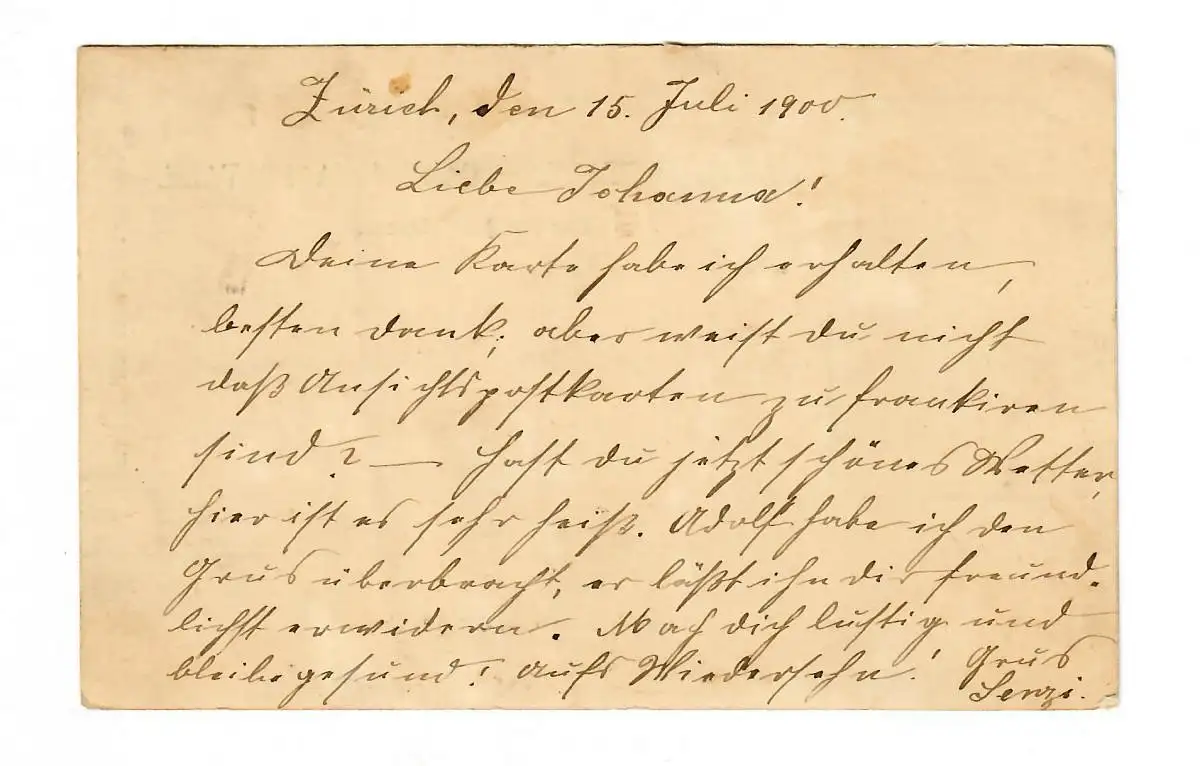 Zürich, den 15. Juli 1900.
Liebe Johanna!
Deine Karte habe ich erhalten,
besten Dank; aber weist du nicht
daß Ansichtspostkarten zu frankiren
sind? — Hast du jetzt schönes Wetter,
hier ist es sehr heiß. Adolf habe ich den
Grus überbracht, er läßt ihn dir freund-
lichst erwidern. Mach dich lustig und
bleibe gesund! Aufs Wiedersehn! Grus
Senzi.